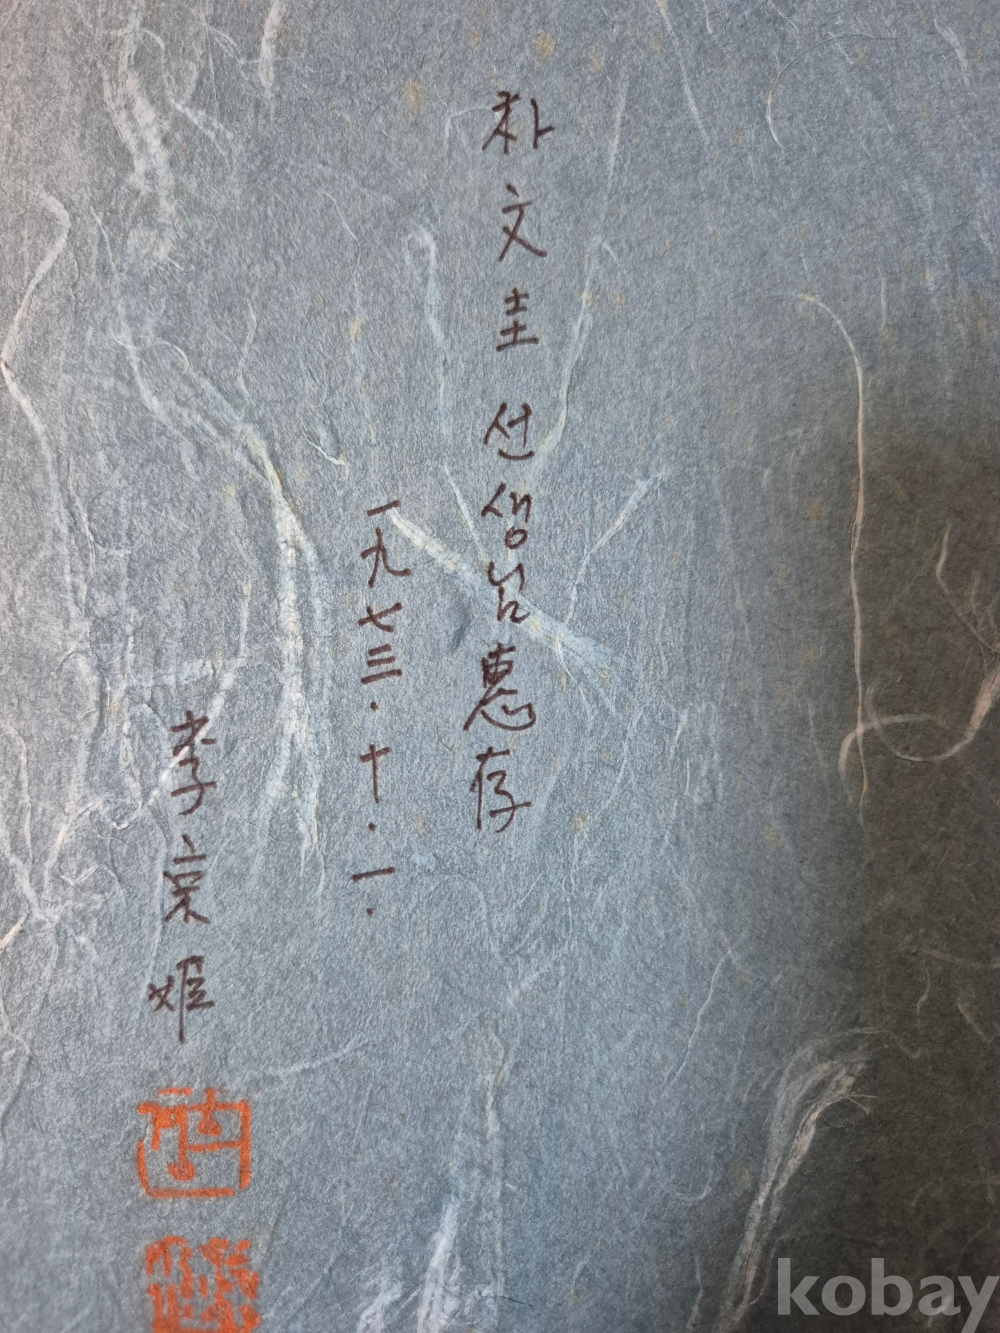 朴文圭 선생님 惠存
一九七三·十·一·
李宗姬
kobay